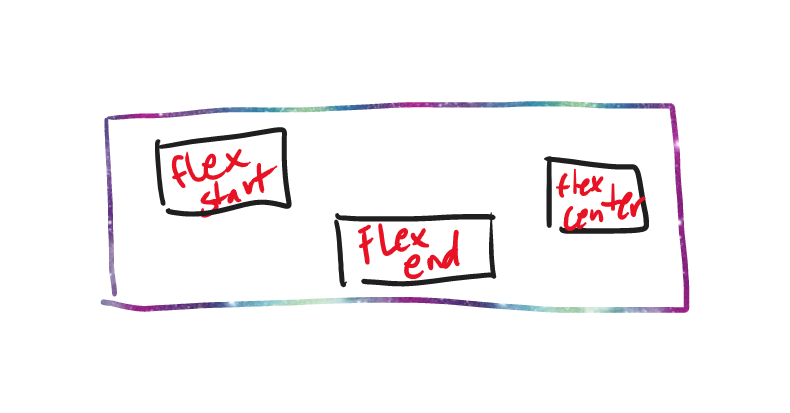 flex
start
flex
end
flex
center